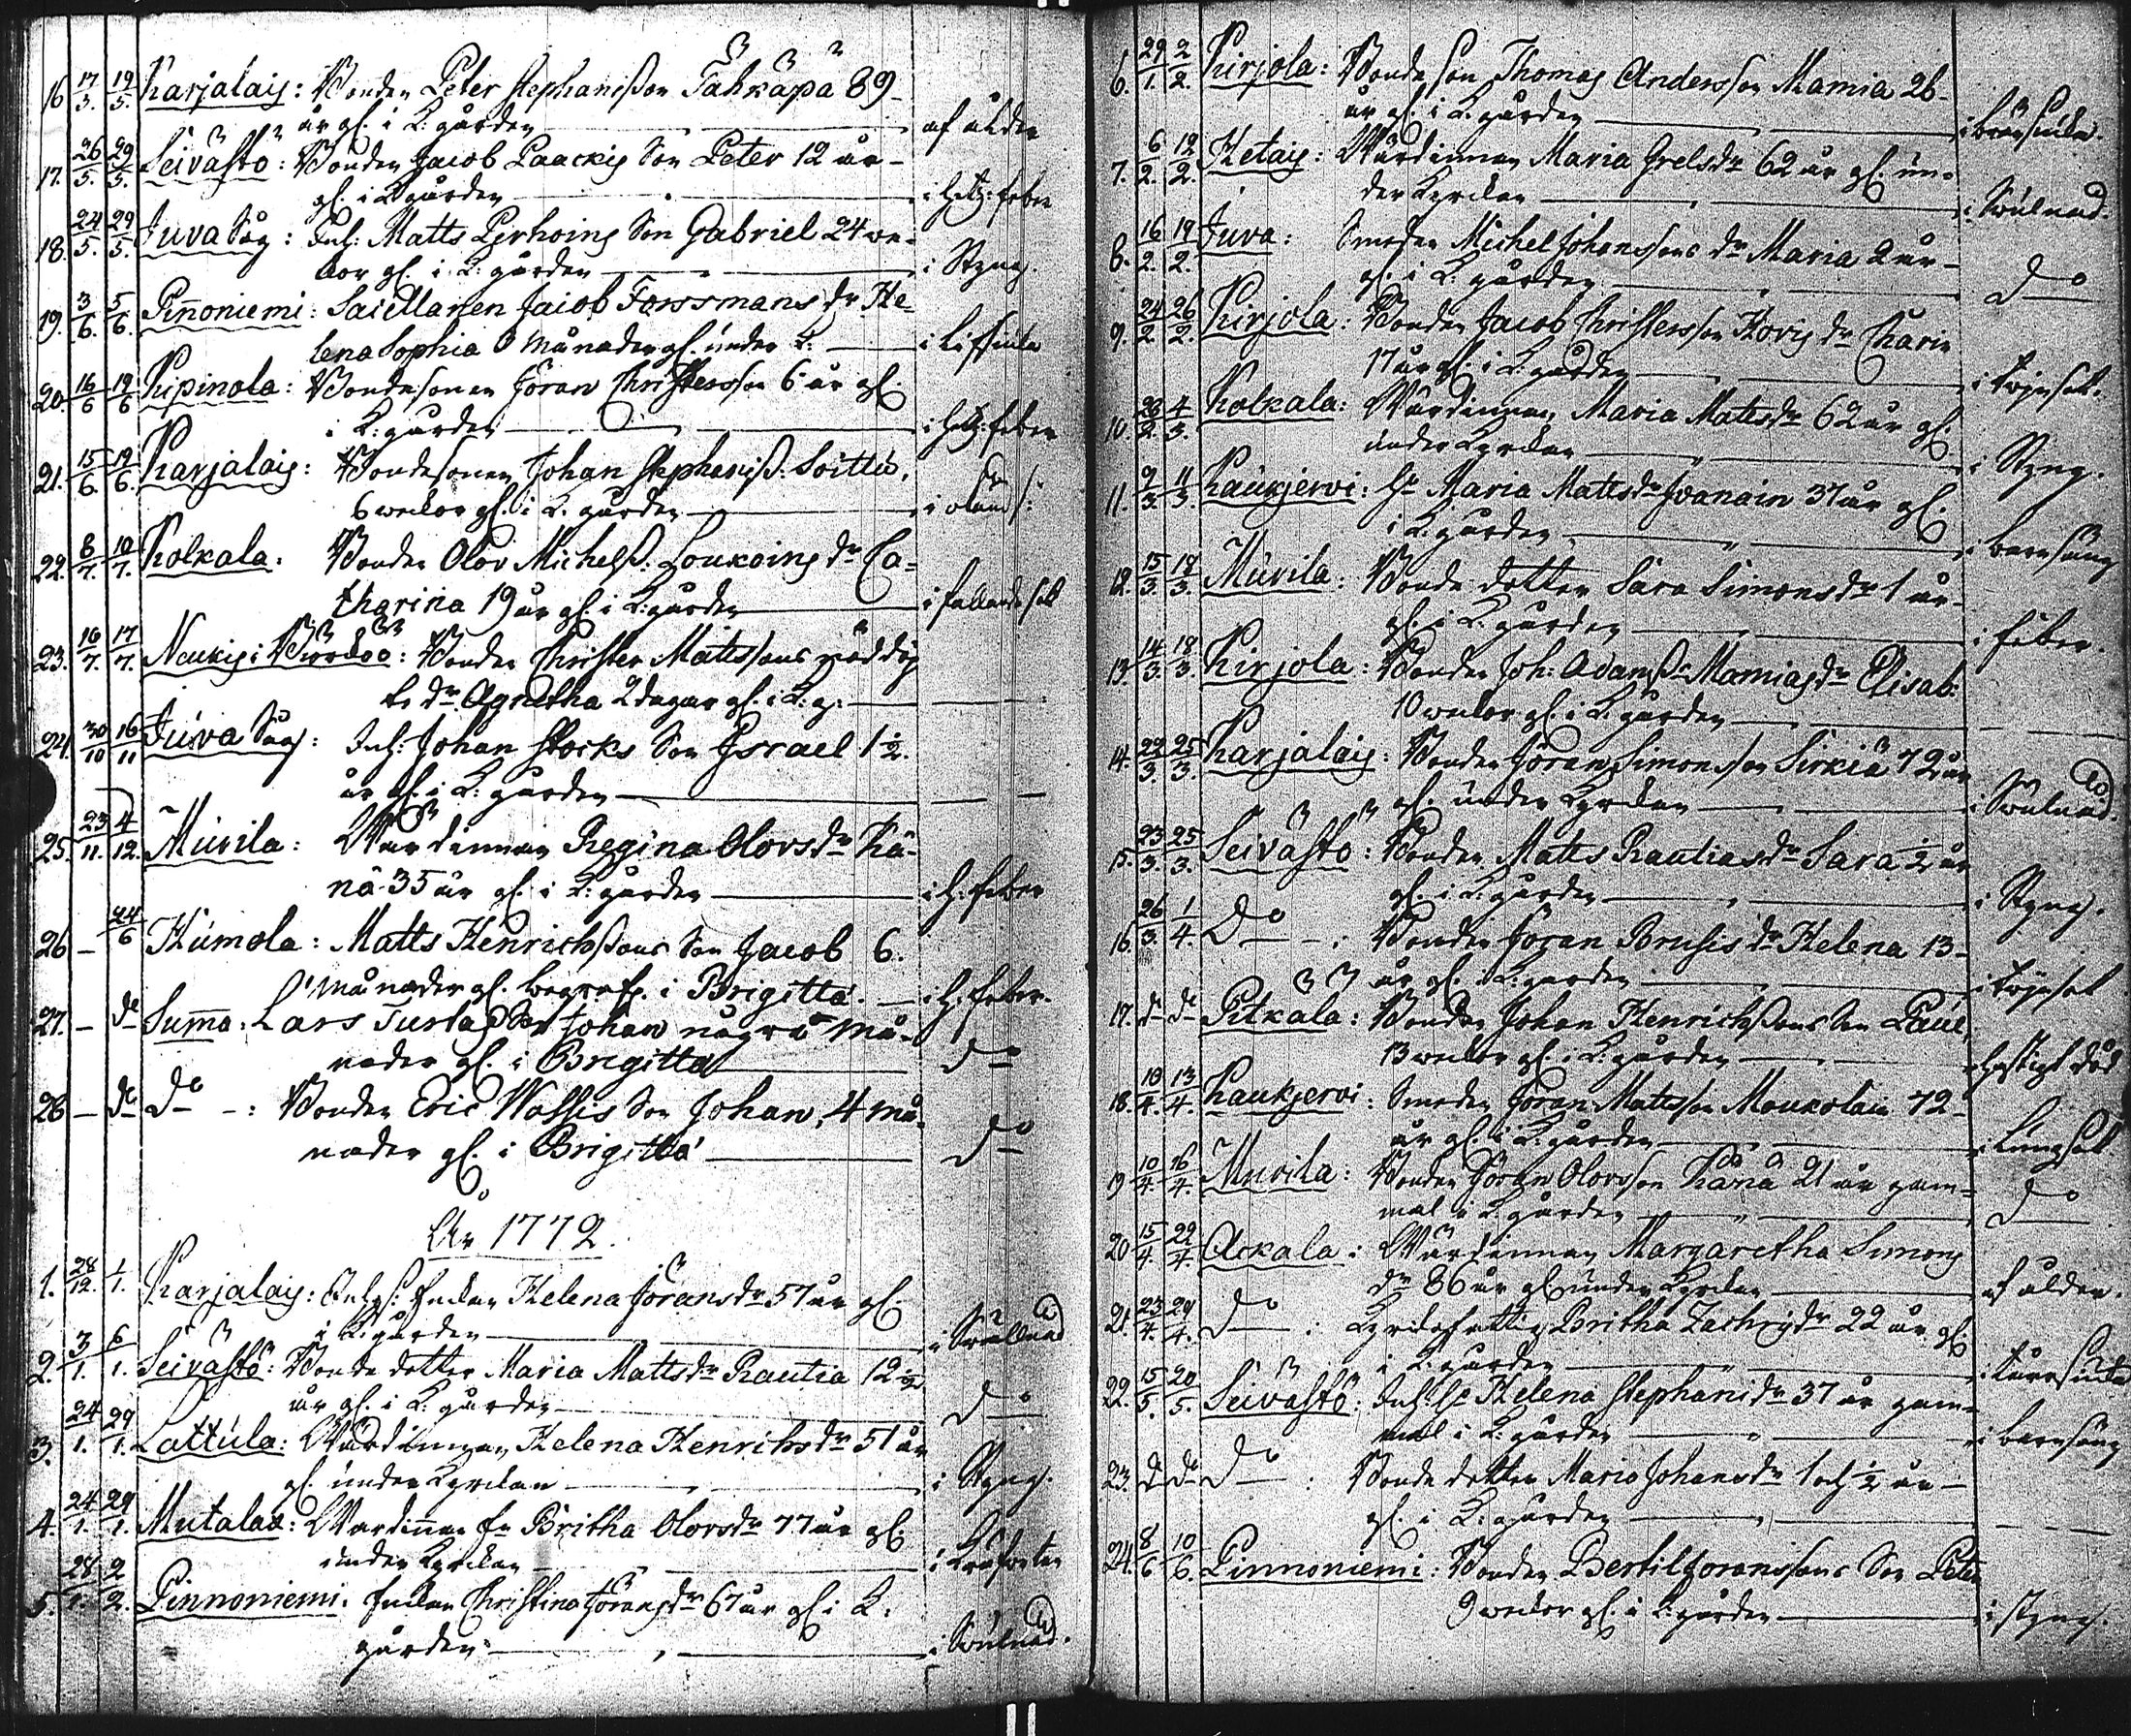 16 17/5. 19/5. Karjalais: Bonden Peter Stephanisson Tähkäpä 89
år gl. i K: gården af ålder
17. 26/5. 29/5. Seivästö: Bonden Jacob Paackis Son Peter 12 år
gl. i K gården i hetz: feber
18. 24/5. 29/5. Juva Såg: Inh: Matts Perhoins Son Gabriel 24 we-
kor gl. i K: gården i Styng.
19. 3/6. 5/6. Pinoniemi: Matts Jacob Forssmans dr He-
lena Sophia 8 Månader gl. under K:
20. 16/6 19/6 Pipinola: Bondesonen Jöran Christersson 6 år gl.
i K: gården i hetz: feber
21. 15/6. 19/6. Karjalais: Bondesonen Johan Stephaniss. Soittu,
6 weckor gl. i K. gården
22. 8/7. 10/7. Kolkala: Bonden Olov Michelss. Loukoins dr Ca=
tharina 19 år gl. i K: gården i fallandesot
23. 16/7. 17/7. Naukis i: Bonden Christer Matssons nöddöp
te dr. Agnetha 2 dagar gl. i K. g:
24. 30/10 16/11 Juva Såg: Inh: Johan Stocks Son Israel 1 1/2.
år gl. i K: gården
25. 23/11. 4/12. Murila: Wärdinnan Regina Olovsdr Kä-
nä 35 år gl. i K: gården i h. feber
26 — 24/6 Humola: Matts Henrichssons Son Jacob 6.
Månader gl. begrafv. i Brigitta. i h. feber.
27. — do Suma: Lars Turtas Son Johan några Må-
nader gl. i Brigitta do
28 — do do : Bonden Eric Wossis Son Johan, 4 må-
nader gl. i Brigitta do
År 1772.
1. 28/12. 1/1. Karjalais: Inhys: Enkan Helena Jöransdr 57 år gl
i K. gården i Swullnad
2. 3/1. 6/1. Seivästö: Bonde dotter Maria Mattsdr Rautia 12 1/2
år gl. i K: gården do
3. 24/1. 29/1. Lattula: Wärdinnan Helena Henrichsdr 51 år
gl. under Kyrckan i Styng.
4. 24/1. 29/1. Mutalax: Wärdinnan Britha Olovsdr 77 år gl.
under Kyrckan i
5. 28/1. 2/2. Pinnoniemi: Enkan Christina Jöransdr 67 år gl. i K:
gården i Swulnad.
6. 29/1. 2/2. Kirjola: Bonde son Thomas Andersson Mamia 26
år gl. i K: gården i bröstsiuka.
7. 6/2. 12/2. Hetais: Wärdinnan Maria Grelsdr 62 år gl. un-
der Kyrckan i Swulnad.
8. 16/2. 19/2. Juva: Smeden Michel Johanssons dr Maria 2 år
gl. i K. gården do
9. 24/2. 26/2. Kirjola: Bonden Jacob Christersson Hovis dr Charin
17 år gl. i K. gården i
10. 28/2. 4/3. Kolkala: Wärdinnan Maria Mattsdr 62 år gl.
under Kyrckan i Styng.
11. 9/3. 11/3. Kaukjervi: Maria Mattsdr Ivanain 37 år gl.
i K: gården i barnsäng
12. 15/3. 18/3. Murila: Bonde dotter Sara Simonsdr 1 år
gl. i K: gården i feber.
13. 14/3. 18/3. Kirjola: Bonden Joh: Adamss. Mamias dr Elisab:
10 weckor gl. i K: gården
14. 22/3. 25/3. Karjalais: Bonden Jöran Simonsson Sirkiä 72 år
gl. under Kyrckan i Swulnad.
15. 23/3. 25/3. Seivästö: Bonden Matts Rautias dr Sara 1/2 år
gl. i K: gården i Styng.
16. 26/3. 1/4. do : Bonden Jöran Brusis dr Helena 13
år gl. i K: gården i
17. do do Pitkälä: Bonden Johan Henrichssons Son Paul,
13 weckor gl. i K: gården hastigt död
18. 10/4. 13/4. Kaukjervi: Smeden Jöran Mattsson Moukolain 72
år gl. i K: gården i Lungsot
19 10/4. 16/4. Murila: Bonden Jöran Olovsson Känä 21 år gam=
mal i K: gården do
20 15/4. 22/4. Ackala: Wärdinnan Margaretha Simons
dr 86 år gl. under Kyrckan af ålder.
21. 23/4. 29/4. do : Kyrckofattig Britha Zachrisdr 22 år gl.
i K: gården
22. 15/5. 20/5. Seivästö: Inh: Helena Stephanidr 37 år gam=
mal i K: gården i barnsäng
23. do do do : Bonde dotter Maria Johansdr 1 och 1/2 år
gl. i K: gården
24. 8/6 10/6. Pinnoniemi: Bonden Bertil Joranssons Son Peter
9 weckor gl. i K: gården i styng.